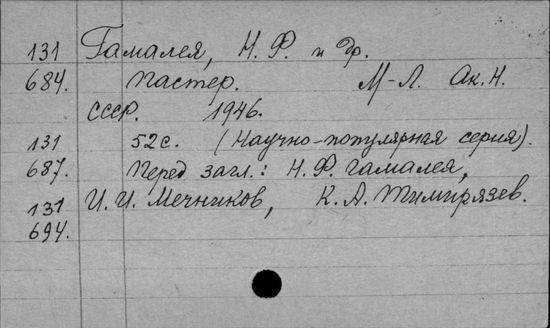 131 Гамалея, Н. Ф. и др.
684. Пастер. М-Л. Ак. Н.
СССР. 1946.
131 52 с. (Научно-популярная серия).
687. Перед загл.: Н. Ф. Гамалея,
131 И. И. Мечников, К. А. Тимирязев.
694.